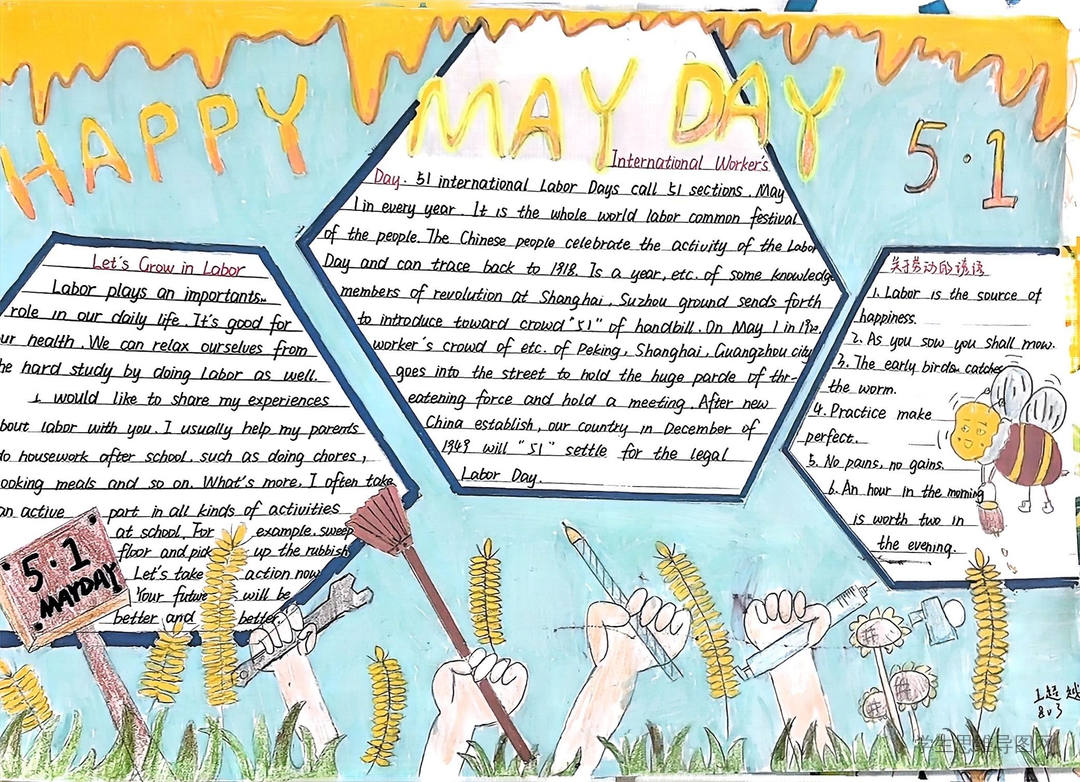 HAPPY MAY DAY
5·1
International Worker's
Day. 51 international Labor Days call 51 sections. May
1 in every year. It is the whole world labor common festival
of the people. The Chinese people celebrate the activity of the Labor
Day and can trace back to 1918. Is a year, etc. of some knowledge
members of revolution at Shanghai, Suzhou ground sends forth
to introduce toward crowd "51" of handbill. On May 1 in
worker's crowd of etc. of Peking, Shanghai, Guangzhou city
goes into the street to hold the huge parde of thr-
eatening force and hold a meeting. After new
China establish, our country in December of
1949 will "51" settle for the legal
Labor Day
Let's Grow in Labor
Labor plays an importants..
role in our daily life. It's good for
ur health. We can relax ourselves from
he hard study by doing labor as well.
I would like to share my experiences
bout labor with you. I usually help my parents
do housework after school. such as doing chores,
ooking meals and so on. What's more, I often take
an active part in all kinds of activities
at school. For example, sweep
floor and pick up the rubbish
Let's take action now
Your future will be
better and better.
关于劳动的谚语
1. Labor is the source of
happiness.
2. As you sow you shall mow.
3. The early birds catches
the worm.
4. Practice make
perfect.
5. No pains, no gains.
6. An hour in the morning
is worth two in
the evening.
5·1
MAYDAY
超越
803
学生思维导图网